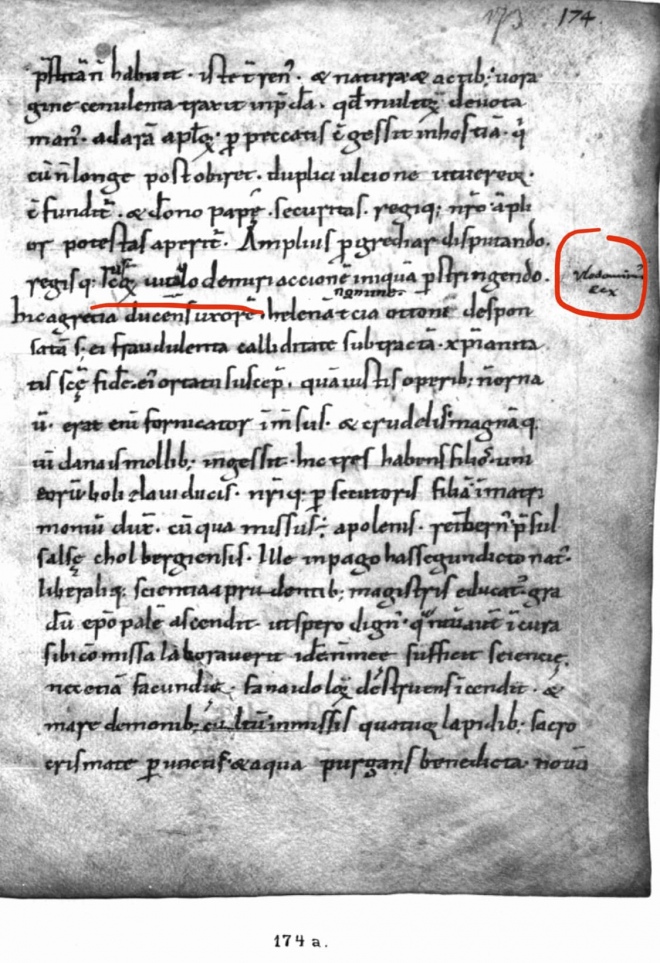 173 174.
p̄stitā n̄ habuit. iste t̄ren̄. & natura & actib; uora
gine cenulenta traxit inp̄da. qđ multoꝝ deuota
man̄. ad arā aptoꝝ. ꝑ peccatis c̄gessit inhostiā. q̄
cū n̄ longe post obiret. duplici ulcione
c̄fundit̄. & dono papę. securitas. regiq; nr̄o apli
or potestas aperit̄. Amplius ꝓgrediar disputando.
regisq; ruscoꝝ uutlodemiri accionē iniquā ꝑstringendo.
Hic agrecia ducens uxorē. helenā nomine. t̄cia ottoni despon
satā s; ei fraudulenta calliditate subtractā. xp̄ianita
tis scę̄ fidē. ei ortatu suscep̄. quā iustis operib; n̄orna
ū. erat eni fornicator īm̄sus. & crudelis. magnāq.
uī danais mollib; ingessit. hic tres habens filios. uni
eorū bolizlaui ducis. nr̄iq; ꝑsecutoris filiā īmatri
moniū dux̄. cū qua missus; apolenis. reibern̄ p̄sul
salsę cholbergiensis. Ille inpago hassegun dicto nat̄.
liberaliq; scientia a prudentib; magistris educat̄. gra
dū ep̄opalē ascendit. ut spero dign̄. q̄ntū aut̄ ī cura
sibi cōmissa laborauerit idē n̄ meę sufficit sciencię.
nec etiā facundię. fana idoloꝝ destruens īcendit. &
mare demonib; cultū inmissis quatuoꝝ lapidib; sacro
crismate ꝑunctis. & aqua purgans benedicta. nouā
Vlodomirus
Rex
174 a.